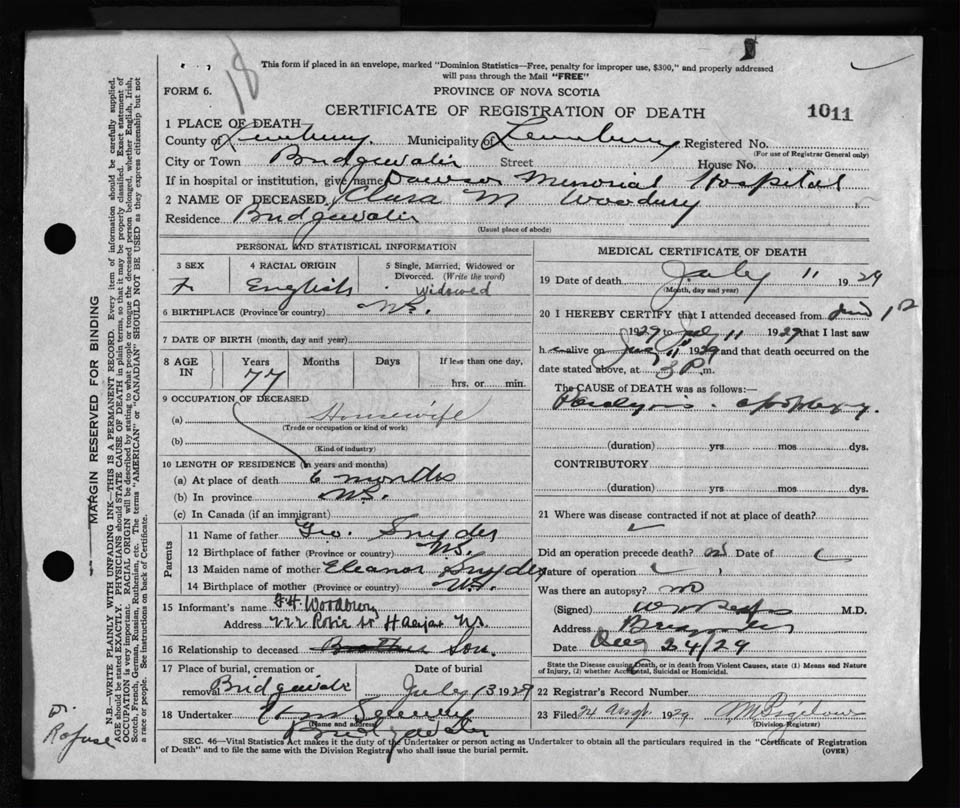 18
This form if placed in an envelope, marked "Dominion Statistics—Free, penalty for improper use, $300," and properly addressed
will pass through the Mail "FREE"
FORM 6.
PROVINCE OF NOVA SCOTIA
CERTIFICATE OF REGISTRATION OF DEATH
1011
1 PLACE OF DEATH
County of Lunenburg. Municipality of Lunenburg Registered No.
(For use of Registrar General only)
City or Town Bridgewater Street House No.
If in hospital or institution, give name Dawson Memorial Hospital
2 NAME OF DECEASED Clara M Woodbury
Residence Bridgewater
(Usual place of abode)
PERSONAL AND STATISTICAL INFORMATION
3 SEX F
4 RACIAL ORIGIN English
5 Single, Married, Widowed or Divorced. (Write the word) Widowed
6 BIRTHPLACE (Province or country) N.S.
7 DATE OF BIRTH (month, day and year)
8 AGE IN Years 77 Months Days If less than one day, hrs. or min.
9 OCCUPATION OF DECEASED
(a) Housewife
(Trade or occupation or kind of work)
(b)
(Kind of industry)
10 LENGTH OF RESIDENCE (in years and months)
(a) At place of death 6 months
(b) In province N.S.
(c) In Canada (if an immigrant)
Parents
11 Name of father Geo. Snyder
12 Birthplace of father (Province or country) N.S.
13 Maiden name of mother Eleanor Snyder
14 Birthplace of mother (Province or country) N.S.
15 Informant's name F H Woodbury
Address 222 Robie St Halifax N.S.
16 Relationship to deceased Brother Son.
17 Place of burial, cremation or removal Bridgewater
Date of burial July 13 1929
18 Undertaker
(Name and address)
Bridgewater
MEDICAL CERTIFICATE OF DEATH
19 Date of death July 11 1929
(Month, day and year)
20 I HEREBY CERTIFY that I attended deceased from
1929 to July 11 1929 that I last saw
h alive on July 11 1929 and that death occurred on the
date stated above, at 3 P. m.
The CAUSE OF DEATH was as follows:—
Paralysis. apoplexy.
(duration) yrs mos dys.
CONTRIBUTORY
(duration) yrs mos dys.
21 Where was disease contracted if not at place of death?
Did an operation precede death? no Date of
Nature of operation
Was there an autopsy? no
(Signed) M.D.
Address
Date Aug 24/29
State the Disease causing Death, or in death from Violent Causes, state (1) Means and Nature
of Injury, (2) whether Accidental, Suicidal or Homicidal.
22 Registrar's Record Number
23 Filed 24 Aug 1929
(Division Registrar)
SEC. 46—Vital Statistics Act makes it the duty of the Undertaker or person acting as Undertaker to obtain all the particulars required in the "Certificate of Registration
of Death" and to file the same with the Division Registrar who shall issue the burial permit. (OVER)
MARGIN RESERVED FOR BINDING
N.B.—WRITE PLAINLY WITH UNFADING INK—THIS IS A PERMANENT RECORD. Every item of information should be carefully supplied.
AGE should be stated EXACTLY. PHYSICIANS should STATE CAUSE OF DEATH in plain terms, so that it may be properly classified. Exact statement of
OCCUPATION is very important. RACIAL ORIGIN will be described by stating to what people or tongue the deceased person belonged, whether English, Irish,
Scotch, French, German, Russian, Ruthenian, etc. The terms "AMERICAN" or "CANADIAN" SHOULD NOT BE USED as they express citizenship but not
a race or people. See instructions on back of Certificate.
Dr.
Rafuse